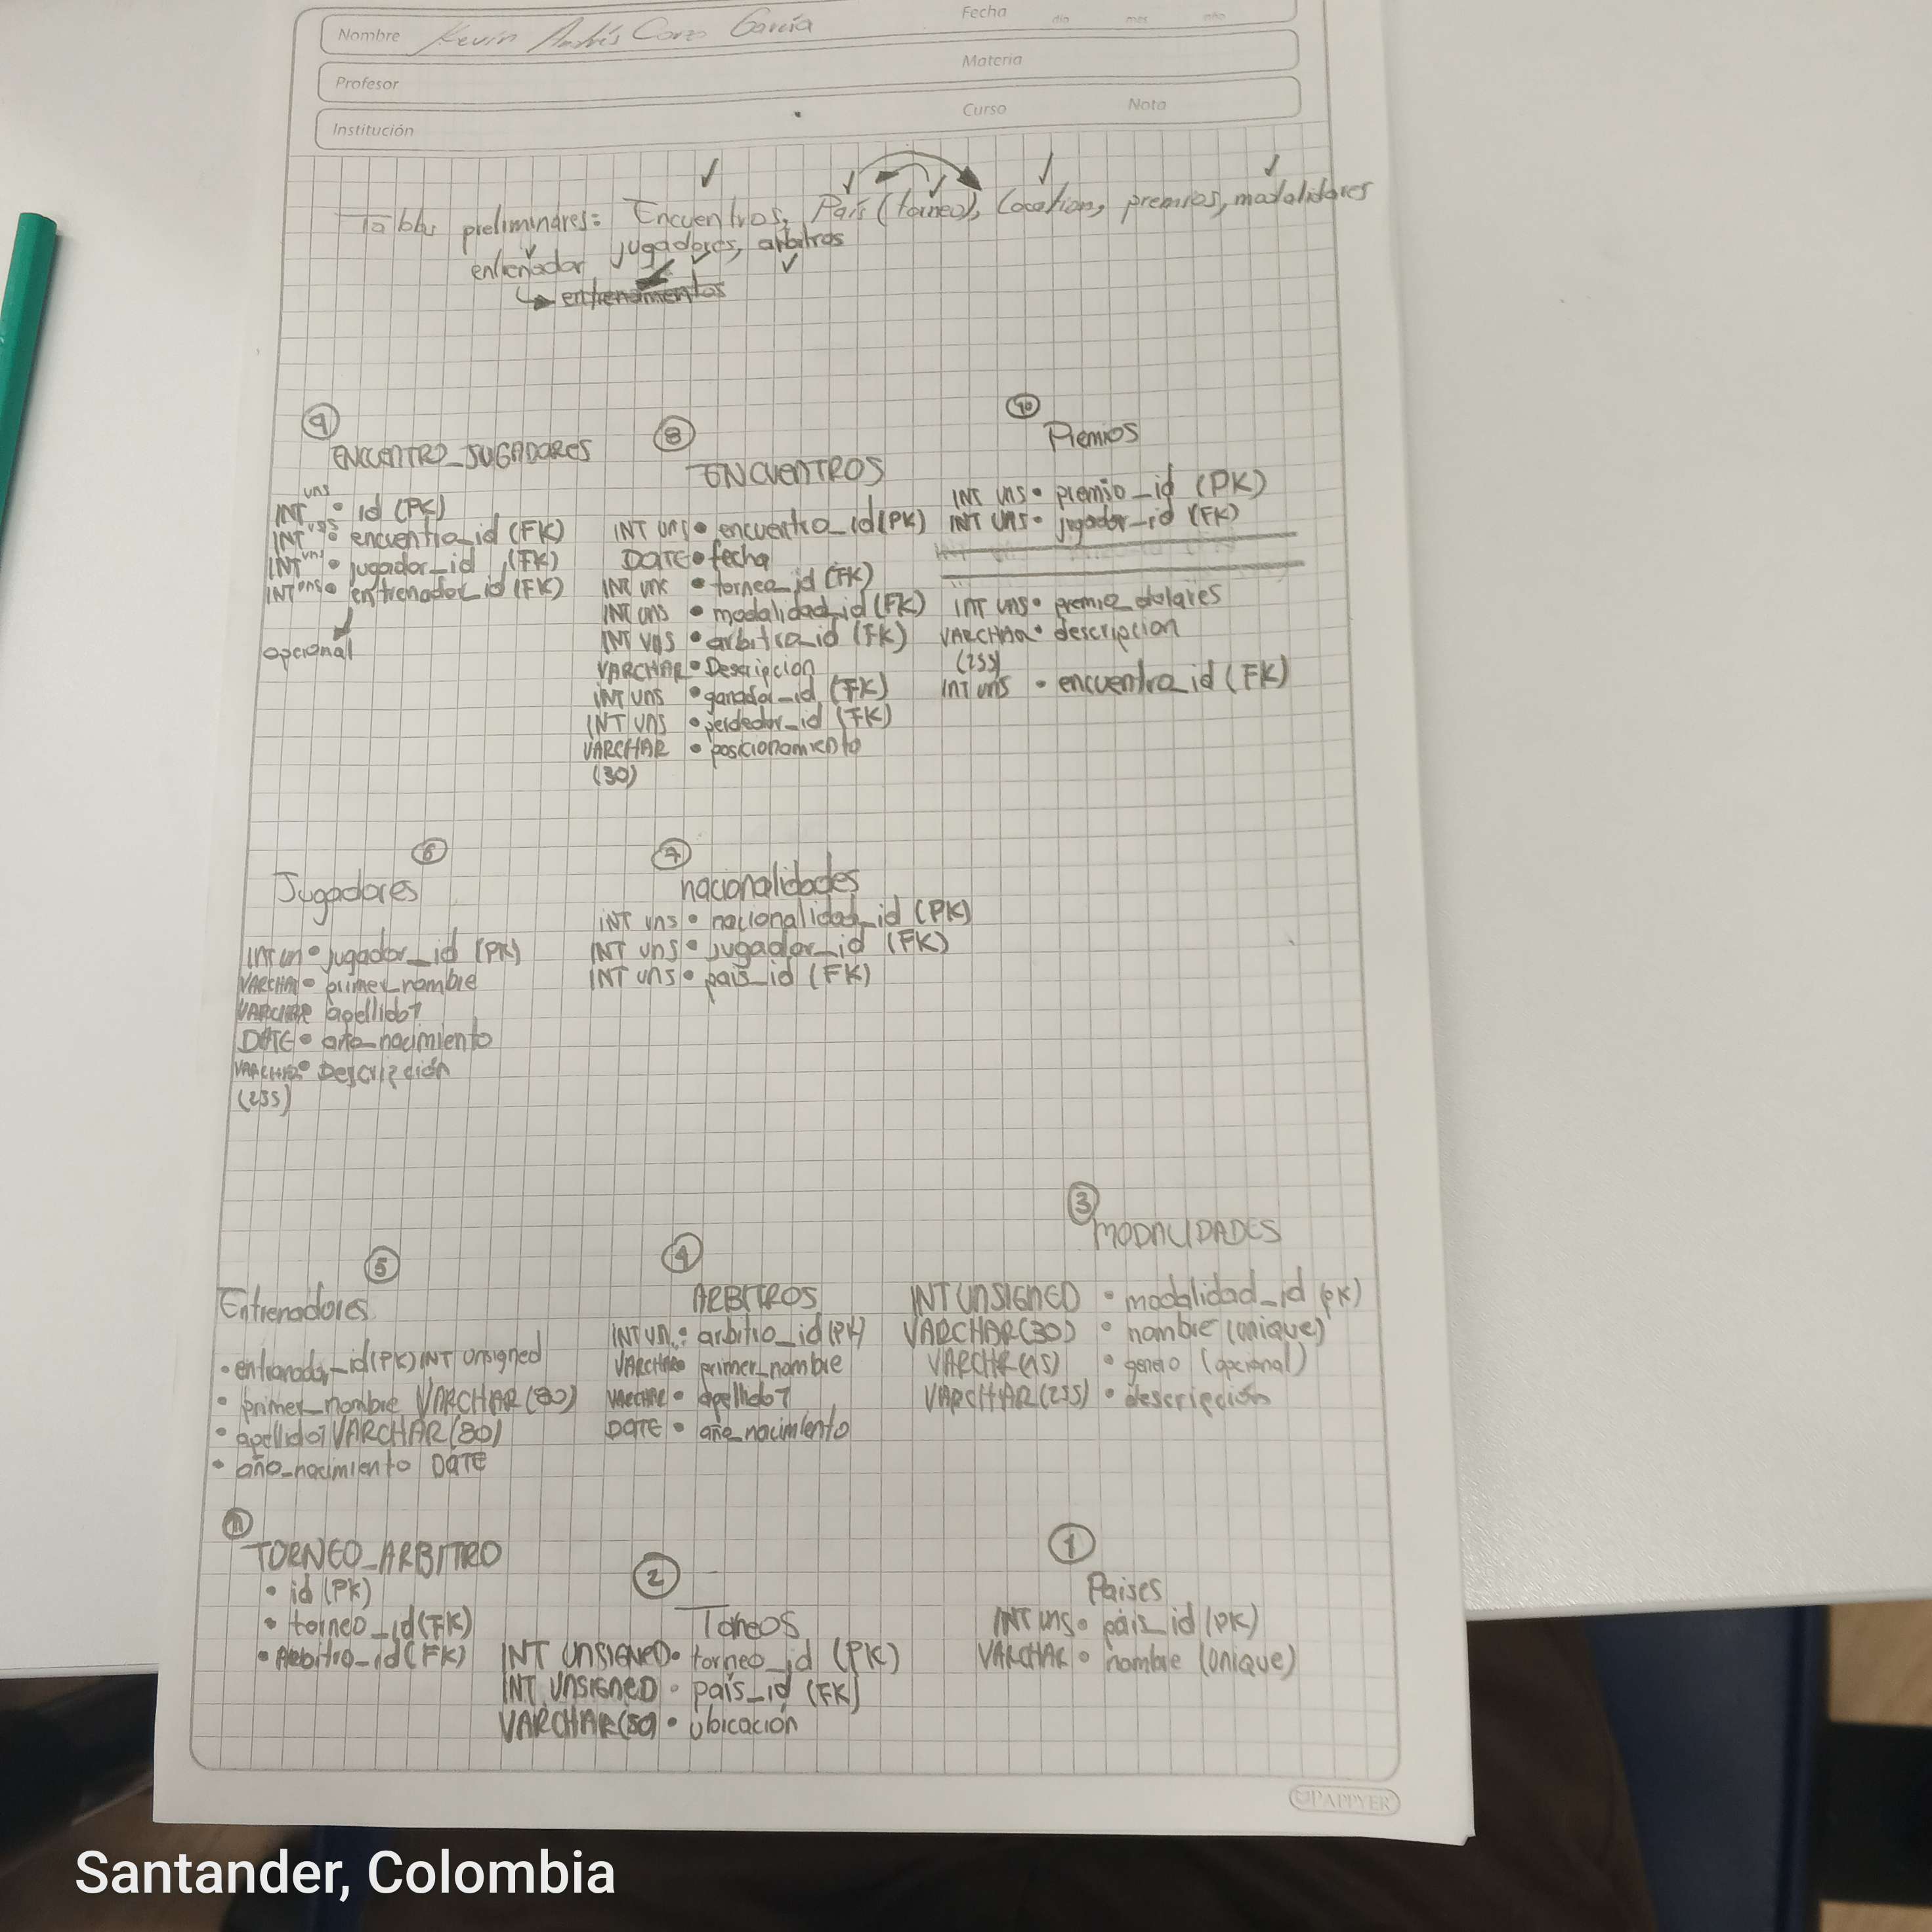 Nombre Kevin Andrés Corzo García
Fecha día mes año
Profesor
Materia
Institución
Curso Nota
Tablas preliminares: Encuentros, País (torneo), Location, premios, modalidares
entrenador jugadores, arbitros
entrenamientos
9
ENCUENTRO_JUGADORES
INT uns • id (PK)
INT uns • encuentro_id (FK)
INT uns • jugador_id (FK)
INT uns • entrenador_id (FK)
opcional
8
ENCUENTROS
INT uns • encuentro_id (PK)
DATE • fecha
INT uns • torneo_id (FK)
INT uns • modalidad_id (FK)
INT uns • arbitro_id (FK)
VARCHAR • Descripcion
INT uns • ganador_id (FK)
INT uns • perdedor_id (FK)
VARCHAR • posicionamiento
(30)
10
Premios
INT uns • premio_id (PK)
INT uns • jugador_id (FK)
INT uns • premio_dolares
VARCHAR • descripcion
(255)
INT uns • encuentro_id (FK)
6
Jugadores
INT un • jugador_id (PK)
VARCHAR • primer_nombre
VARCHAR apellido1
DATE • año_nacimiento
VARCHAR • Descripción
(255)
7
nacionalidades
INT uns • nacionalidad_id (PK)
INT uns • jugador_id (FK)
INT uns • país_id (FK)
5
Entrenadores
• entrenador_id (PK) INT unsigned
• primer_nombre VARCHAR (80)
• apellido1 VARCHAR (80)
• año_nacimiento DATE
4
ARBITROS
INT un. • arbitro_id (PK)
VARCHAR • primer_nombre
VARCHAR • apellido1
DATE • año_nacimiento
3
MODALIDADES
INT UNSIGNED • modalidad_id (PK)
VARCHAR(30) • nombre (unique)
VARCHR(15) • genero (opcional)
VARCHAR(255) • descripción
11
TORNEO_ARBITRO
• id (PK)
• torneo_id (FK)
• Arbitro_id (FK)
2
Torneos
INT UNSIGNED • torneo_id (PK)
INT UNSIGNED • país_id (FK)
VARCHAR(50) • ubicación
1
Paises
INT uns • país_id (PK)
VARCHAR • nombre (unique)
PAPPYER
Santander, Colombia